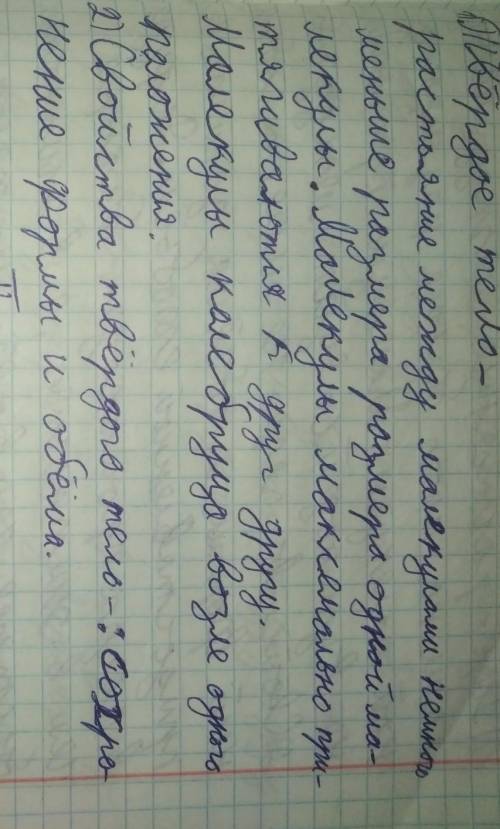 1) Твёрдое тело -
растояние между малекулами немного
меньше размера размера одной ма-
лекулы. Малекулы максемально при-
тягиваются к друг другу.
Малекулы калебруца возле одного
паложения.
2) Свойства твёрдого тело -: Сохра-
нение формы и обёма.
II